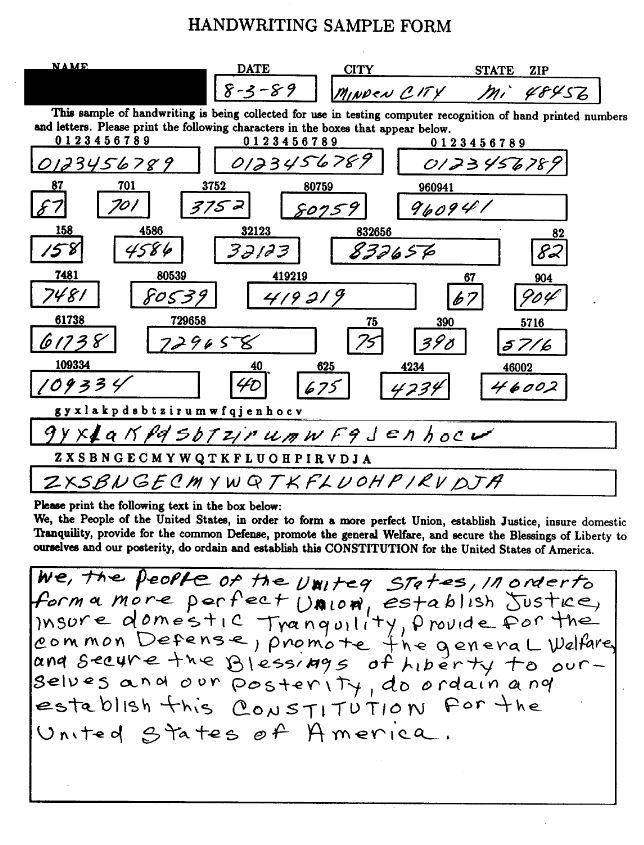 HANDWRITING SAMPLE FORM
NAME DATE CITY STATE ZIP
8-3-89 MINDEN CITY Mi 48456
This sample of handwriting is being collected for use in testing computer recognition of hand printed numbers
and letters. Please print the following characters in the boxes that appear below.
0 1 2 3 4 5 6 7 8 9 0 1 2 3 4 5 6 7 8 9 0 1 2 3 4 5 6 7 8 9
0123456789 0123456789 0123456789
87 701 3752 80759 960941
87 701 3752 80759 960941
158 4586 32123 832656 82
158 4586 32123 832656 82
7481 80539 419219 67 904
7481 80539 419219 67 904
61738 729658 75 390 5716
61738 729658 75 390 5716
109334 40 625 4234 46002
109334 40 675 4234 46002
g y x l a k p d s b t z i r u m w f q j e n h o c v
gyxlakpdsbTzirumwFqJenhocv
Z X S B N G E C M Y W Q T K F L U O H P I R V D J A
ZXSBNGECMYWQTKFLUOHPIRVDJA
Please print the following text in the box below:
We, the People of the United States, in order to form a more perfect Union, establish Justice, insure domestic
Tranquility, provide for the common Defense, promote the general Welfare, and secure the Blessings of Liberty to
ourselves and our posterity, do ordain and establish this CONSTITUTION for the United States of America.
We, the People of the United States, in order to
form a more perfect Union, establish Justice,
insure domestic Tranquility, Provide for the
common Defense, promote the general Welfare,
and secure the Blessings of Liberty to our-
selves and our Posterity, do ordain and
establish this CONSTITUTION for the
United States of America.